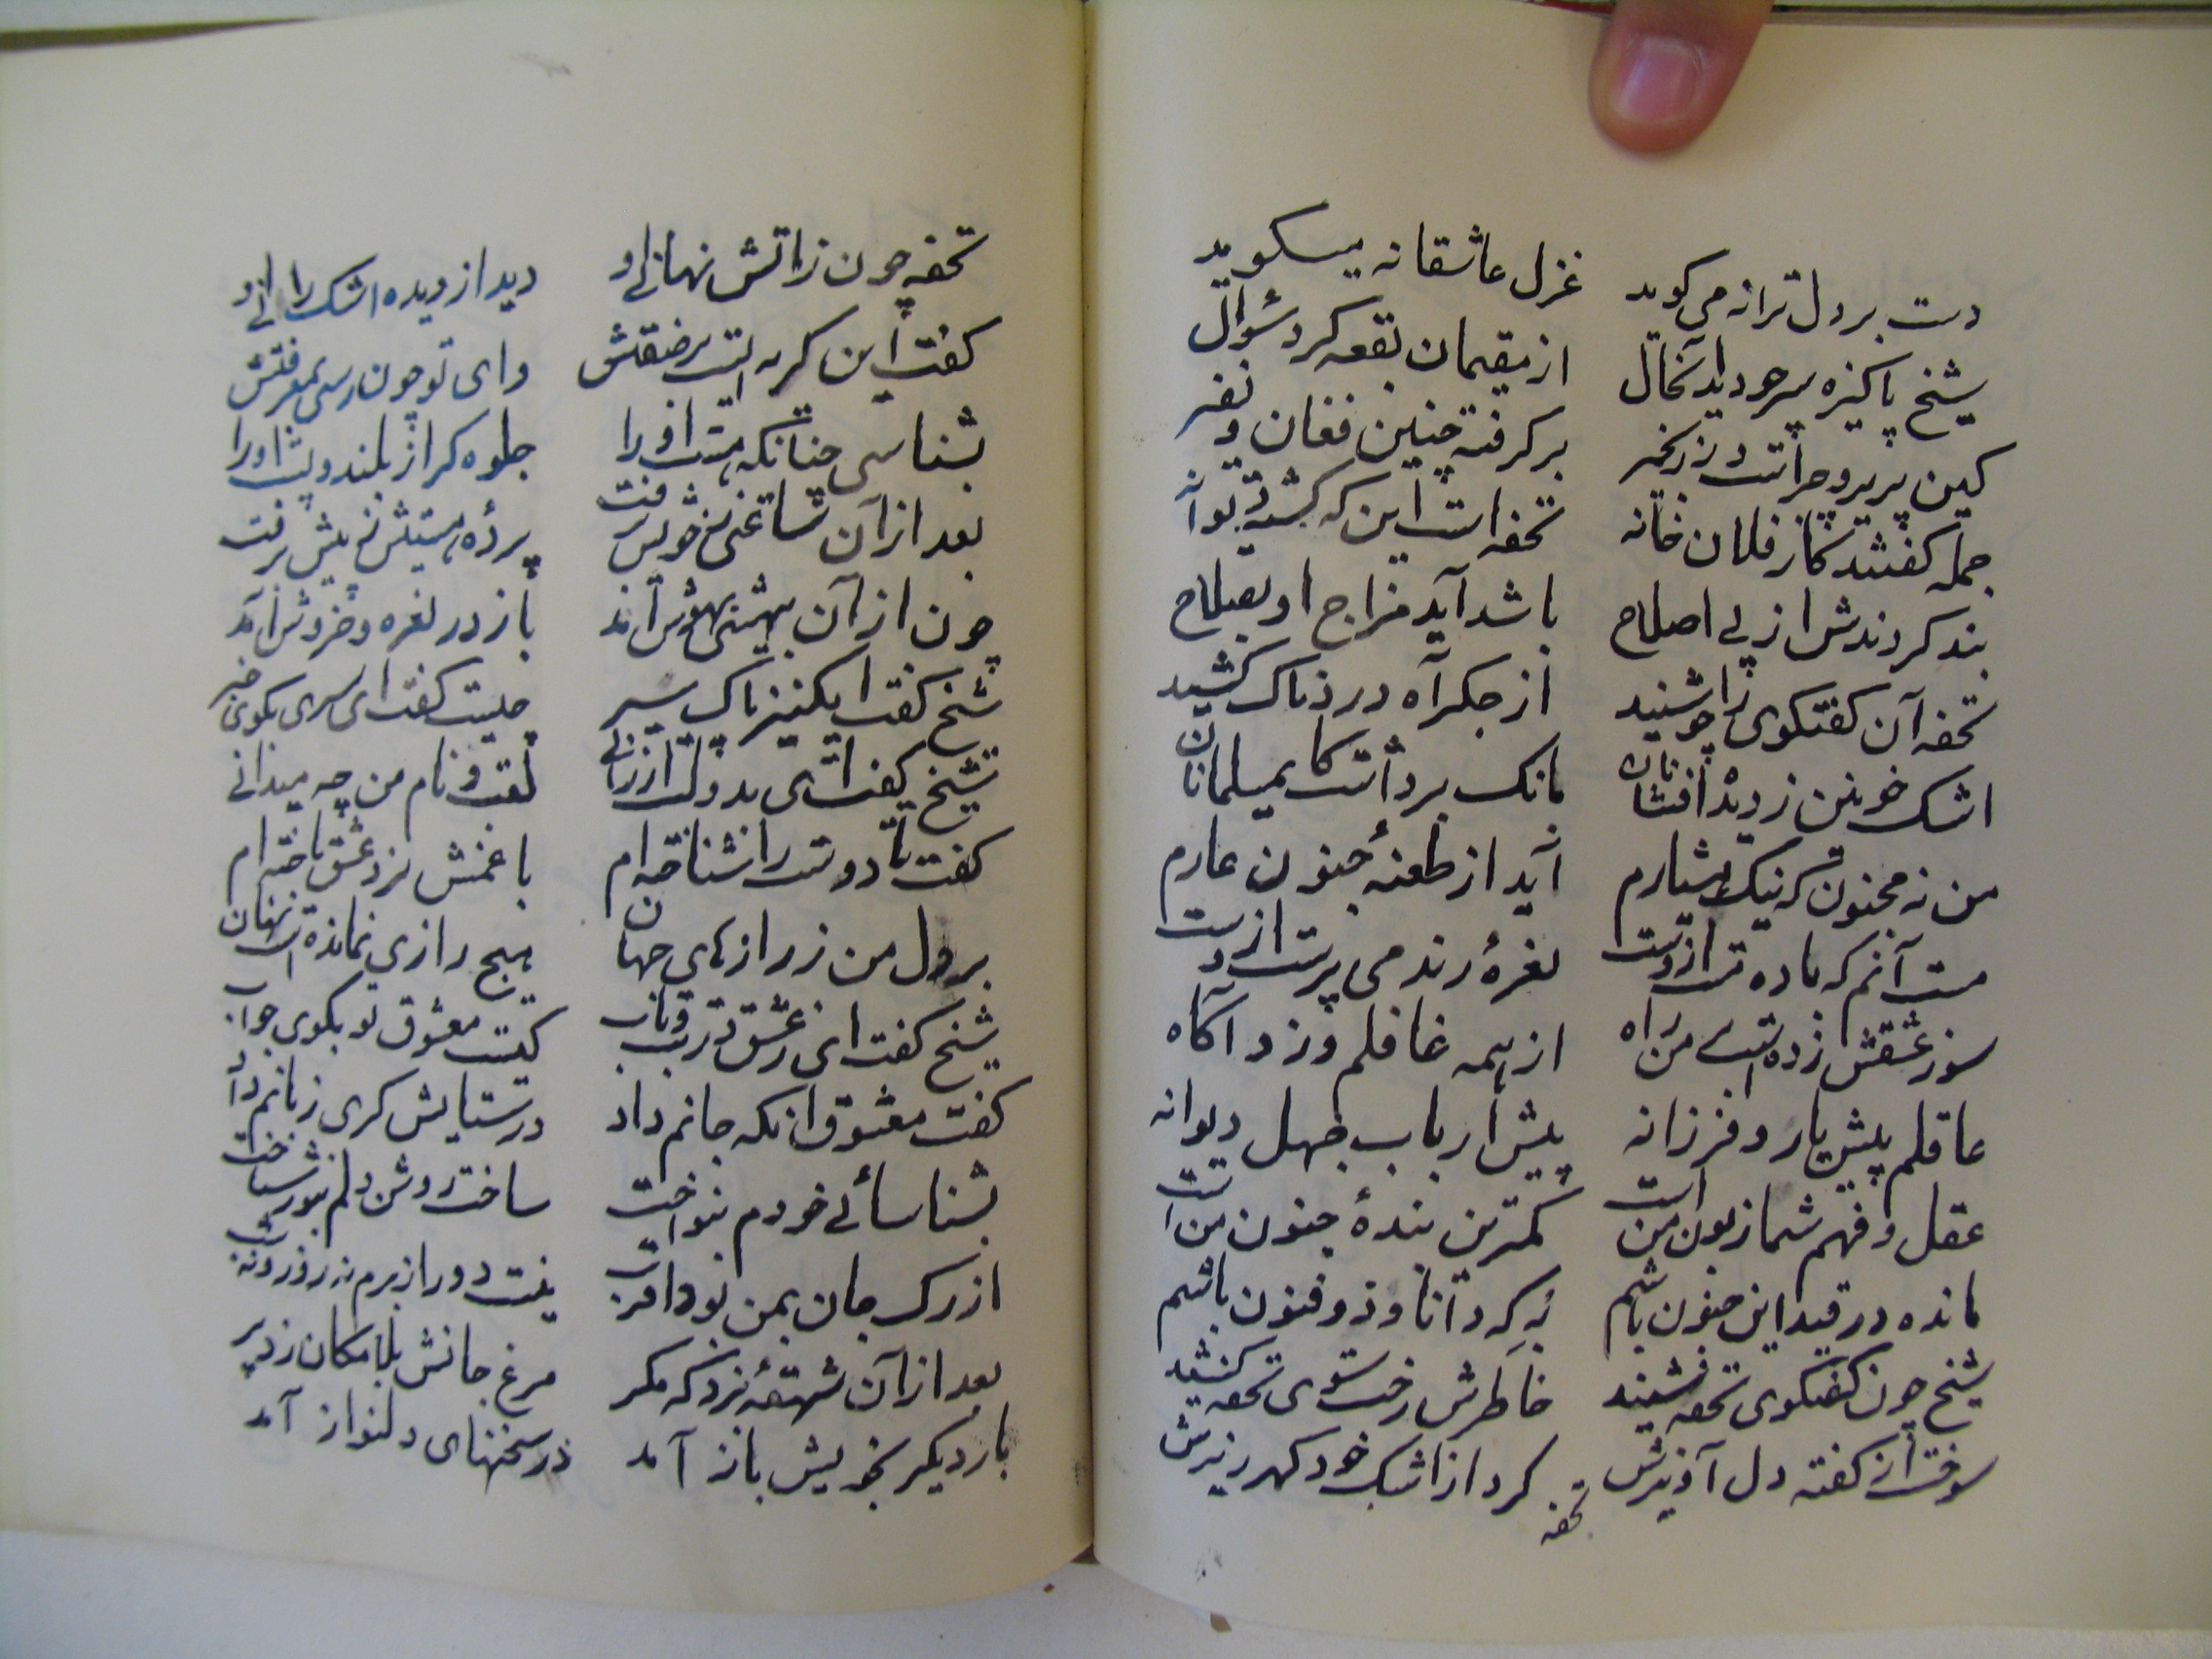 دست بر دل ترانه می‌گوید غزل عاشقانه میگوید
شیخ پاکیزه سر چو دید آنحال از مقیمان بقعه کرد سؤال
کین پریرو چراست در زنجیر برگرفته چنین فغان و نفیر
جمله گفتند کز فلان خانه تحفه است این که گشته دیوانه
بند کردندش از پی اصلاح باشد آید مزاج او بصلاح
تحفه آن گفتگوی را چو شنید از جگر آه دردناک کشید
اشک خونین ز دیده افشانان بانگ برداشت کای مسلمانان
من نه مجنون که نیک هشیارم آید از طعنهٔ جنون عارم
مست آنم که باده مست ازوست نعرهٔ رند می پرست ازوست
سوز عشقش زده است من راه از همه غافلم وزد آگاه
عاقلم پیش یار و فرزانه پیش ارباب جهل دیوانه
عقل و فهم شما زبون من است کمترین بندهٔ جنون من است
مانده در قید این جنون باشم به که دانا و ذوفنون باشم
شیخ چون گفتگوی تحفه شنید خاطرش رخت سوی تحفه کشید
سوخت از گفته دل آویزش کرد از اشک خود گهر ریزش
تحفه
تحفه چون زاتش نهانی او دید از دیده اشک رانی او
گفت این گریه است بر صفتش وای تو چون رسی بمعرفتش
بشناسی چنانکه هست او را جلوه گر از بلند و پست او را
بعد از آن ساعتی ز خویش برفت پردهٔ هستیش ز پیش برفت
چون از آن بیهشی بهوش آمد باز در نعره و خروش آمد
شیخ گفت ای کنیز پاک سیر چیست گفت ای سری بگوی خبر
شیخ گفت اش ای بدولت ارزانی لقب و نام من چه میدانی
گفت تا دوست را شناخته ام با غمش نرد عشق باخته ام
بر دل من ز رازهای جهان هیچ رازی نمانده است نهان
شیخ گفت ای ز عشق در تب و تاب کیست معشوق تو بگوی جواب
گفت معشوق آنکه جانم داد در ستایش گری زبانم داد
بشناسائی خودم بنواخت ساخت روشن دلم بنور شناخت
از رگ جان بمن بود اقرب نیست دور از برم نه روز و نه شب
بعد از آن شهقهٔ بزد که مگر مرغ جانش بلامکان زد پر
بار دیگر بخویش باز آمد در سخنهای دلنواز آمد